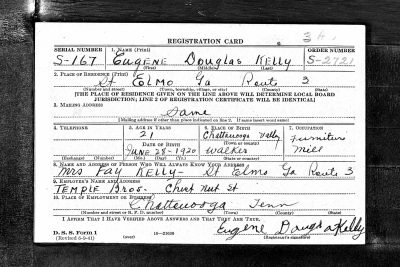 REGISTRATION CARD
SERIAL NUMBER 1. Name (Print) ORDER NUMBER
S-167 Eugene Douglas Kelly S-2721
(First) (Middle) (Last)
2. Place of Residence (Print)
St Elmo Ga Route 3
(Number and street) (Town, township, village, or city) (County) (State)
[THE PLACE OF RESIDENCE GIVEN ON THE LINE ABOVE WILL DETERMINE LOCAL BOARD
JURISDICTION; LINE 2 OF REGISTRATION CERTIFICATE WILL BE IDENTICAL]
3. Mailing Address
Same
[Mailing address if other than place indicated on line 2. If same insert word same]
4. Telephone 5. Age in Years 6. Place of Birth 7. Occupation
21 Chattanooga Valley furniture
Date of Birth (Town or county)
June-28-1920 Walker mill
(Exchange) (Number) (Mo.) (Day) (Yr.) (State or country)
8. Name and Address of Person Who Will Always Know Your Address
Mrs Fay Kelly - St Elmo Ga Route 3
9. Employer's Name and Address
Temple Bros - Chest nut St
10. Place of Employment or Business
Chattanooga Tenn
(Number and street or R. F. D. number) (Town) (County) (State)
I Affirm That I Have Verified Above Answers and That They Are True.
D. S. S. Form 1
(Revised 6-9-41) Eugene Douglas Kelly